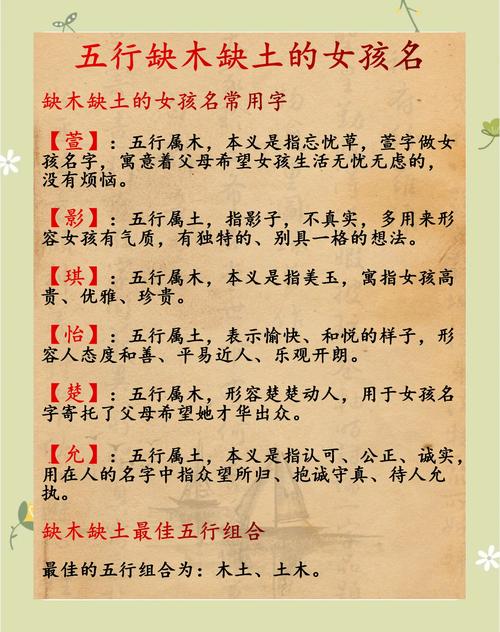 五行缺木缺土的女孩名
缺木缺土的女孩名常用字
【萱】：五行属木，本义是指忘忧草，萱字做女
孩名字，寓意着父母希望女孩生活无忧无虑的，
没有烦恼。
【影】：五行属土，指影子，不真实，多用来形
容女孩有气质，有独特的、别具一格的想法。
【琪】：五行属木，本义是指美玉，寓指女孩高
贵、优雅、珍贵。
【怡】：五行属土，表示愉快、和悦的样子，形
容人态度和善、平易近人、乐观开朗。
【楚】：五行属木，形容楚楚动人，用于女孩名
字寄托了父母希望她才华出众。
【允】：五行属土，本义是指认可、公正、诚实，
用在人的名字中指众望所归、抱诚守真、待人允
执。
缺木缺土最佳五行组合
最佳的五行组合为：木土、土木。